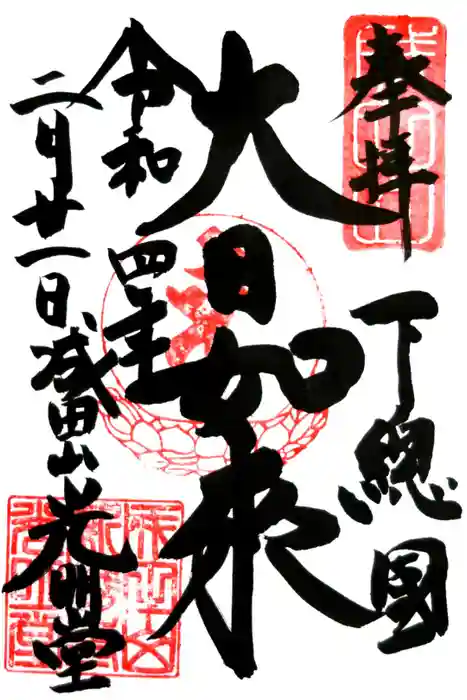 奉拝
下總國
大日如来
令和四年
二月廿一日成田山光明堂